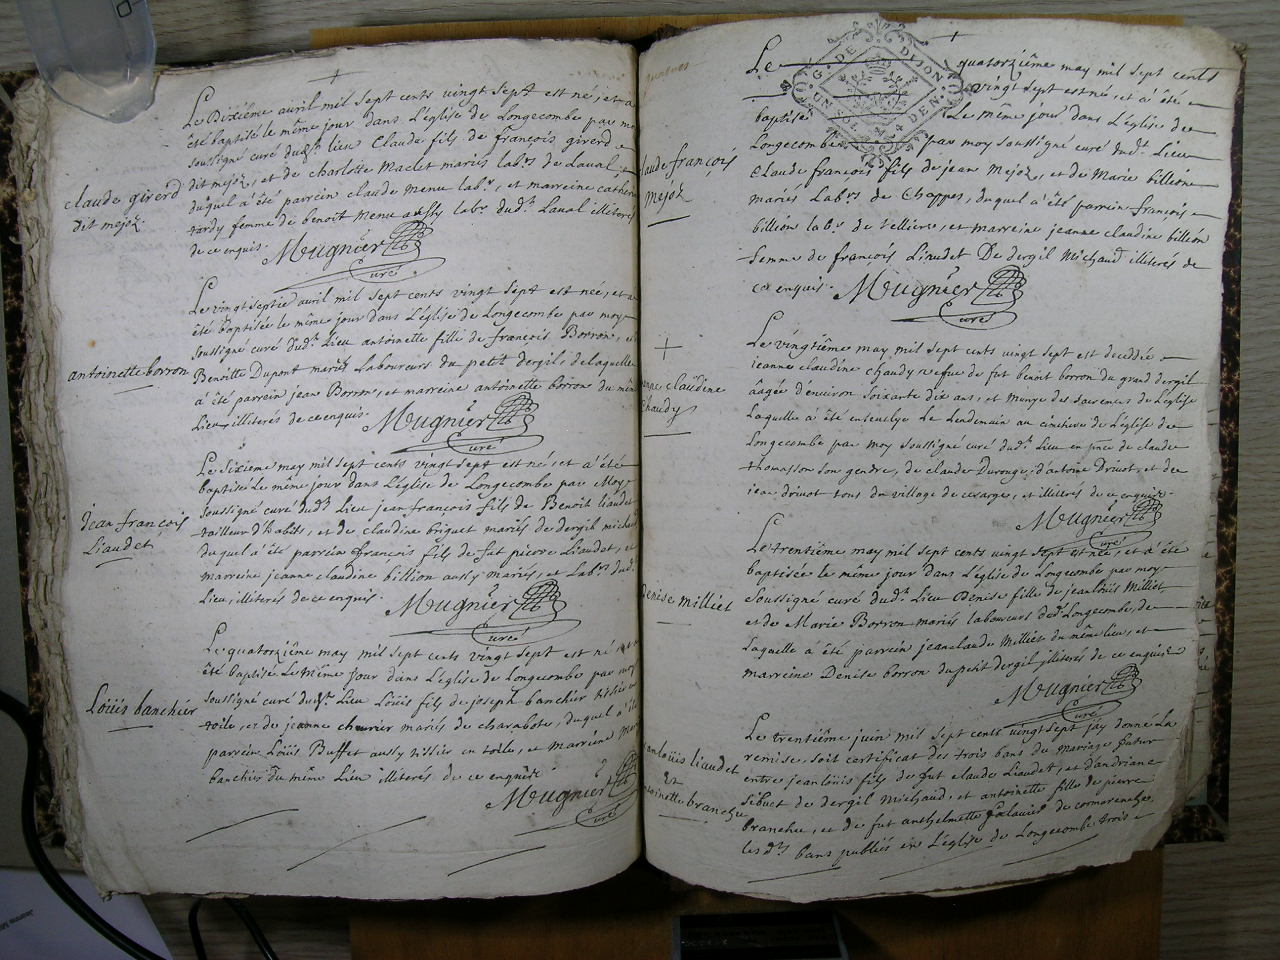 Le Dixiéme avril mil sept cents vingt sept est né, et a
été baptisé le même jour dans L'église de Longecombe par mo
soussigné curé dudt lieu Claude fils de françois girerd
claude girerd
dit mejoz
dit mejoz, et de charlotte Maclet mariés labrs de Laval
duquel a été parrein claude menu labr, et marreine cather
tardy femme de benoit menu aussy labr dudt Laval illiterés
de ce enquis. Mugnier
curé
Le vingt septie avril mil sept cents vingt sept est née, et a
été baptisée le même jour dans L'église de Longecombe par moy
soussigné curé dudt Lieu antoinette fille de françois Borron, et
antoinette borron
Benoitte Dupont mariés Laboureurs du petit dergil, de laquelle
a été parrein jean Borron, et marreine antoinette borron du même
Lieu illiterés de ce enquis. Mugnier
curé
Le sixiéme may mil sept cents vingt sept est né, et a été
baptisé Le même jour dans L'église de Longecombe par Moy
soussigné curé dudt Lieu jean françois fils de Benoit liaudet
jean françois
Liaudet
tailleur d'habits, et de claudine briguet mariés de dergil michaud
duquel a été parrein françois fils de fut pierre Liaudet, et
marreine jeanne claudine billion aussy mariés, et Labrs dudt
Lieu, illiterés de ce enquis. Mugnier
curé
Le quatorziême may mil sept cents vingt sept est né
été baptisé Le même jour dans L'église de Longecombe par moy
soussigné curé dudt Lieu Loüis fils de joseph banchier tissier en
Loüis banchier
toile, et de jeanne cheurier mariés de charabote, duquel a été
parrein Loüis Buffet aussy tissier en toile, et marreine
banchier du même Lieu illiterés de ce enquis
Mugnier
curé
Le quatorziême may mil sept cents
G. DE DIJON
UN S. 4 DEN.
vingt sept est né, et a été
baptisé Le même jour dans L'église de
Longecombe par moy soussigné curé dudt Lieu
laude françois
mejoz
Claude françois fils de jean Mejoz, et de Marie billion
mariés Labrs de Chappes, duquel a été parrein françois
billion labr de Velliers, et marreine jeanne claudine billion
femme de françois Liaudet De dergil Michaud illiterés de
ce enquis. Mugnier
curé
Le vingtiême may mil sept cents vingt sept est decedée
jeanne claudine chaudy vefue de fut benoit borron du grand dergil
nne claudine
chaudy
aagée d'environ soixante dix ans, et munye des sacremens de L'église
Laquelle a été ensevelye Le Lendemain au cimitiere de L'église de
Longecombe par moy soussigné curé dudt Lieu en pnce de claude
thomasson son gendre, de claude Durouge, d'antoine Drivot, et de
jean drivot tous du village de cerarges, et illiterés de ce enquis.
Mugnier
curé
Le trentiême may mil sept cents vingt sept est née, et a été
baptisée le même jour dans L'église de Longecombe par moy
Denise milliet
soussigné curé dudt Lieu Denise fille de jean loüis Milliet
et de Marie Borron mariés laboureurs dudt Longecombe, de
Laquelle a été parrein jean claude Milliet du même lieu, et
marreine Denise borron du petit dergil illiterés de ce enquis
Mugnier
curé
Le trentiême juin mil sept cents vingt sept jay donné La
an loüis liaudet
et
ntoinette branche
remise, soit certificat des trois bans du mariage futur
entre jean loüis fils de fut claude Liaudet, et d'andriane
sibuet de dergil michaud, et antoinette fille de pierre
branche, et de fut anthelmette de cormoranche
les dts bans publiés en L'église de Longecombe trois